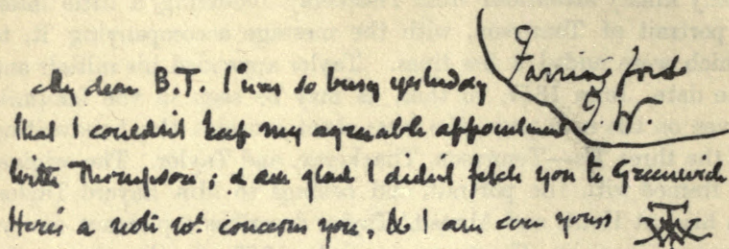 Farringford
I. W.
My dear B.T. I was so busy yesterday
that I couldn't keep my agreeable appointment
with Thompson; & am glad I didn't fetch you to Greenwich
Here's a note wh. concerns you, & I am ever yours